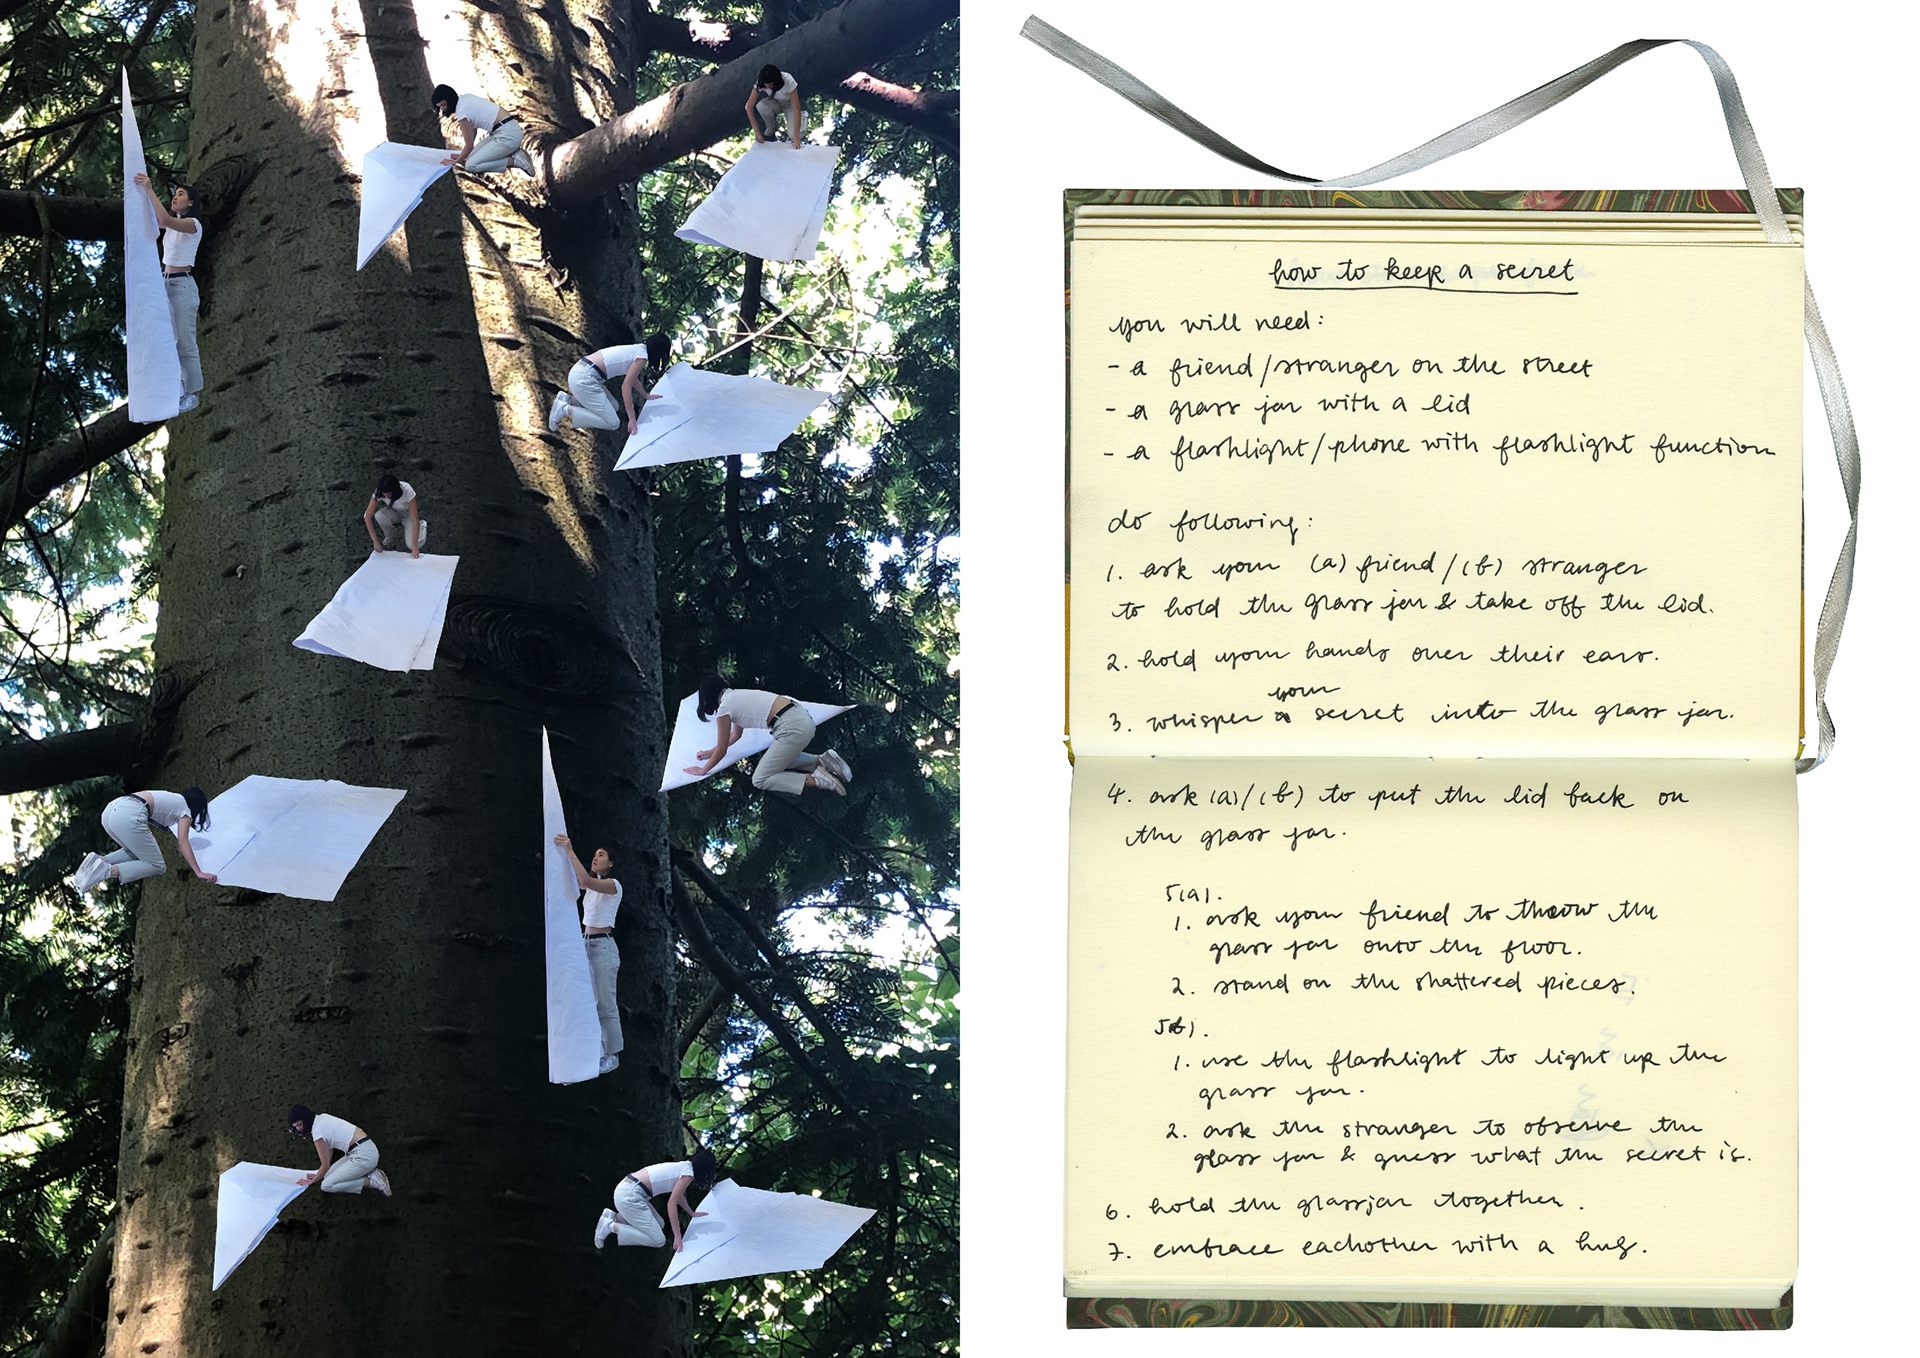 how to keep a secret
you will need:
- a friend/stranger on the street
- a glass jar with a lid
- a flashlight/phone with flashlight function
do following:
1. ask your (a) friend/(b) stranger
to hold the glass jar & take off the lid.
2. hold your hands over their ears.
your
3. whisper a secret into the glass jar.
4. ask (a)/(b) to put the lid back on
the glass jar.
5(a).
1. ask your friend to throw the
glass jar onto the floor.
2. stand on the shattered pieces.
5(b).
1. use the flashlight to light up the
glass jar.
2. ask the stranger to observe the
glass jar & guess what the secret is.
6. hold the glassjar together.
7. embrace eachother with a hug.